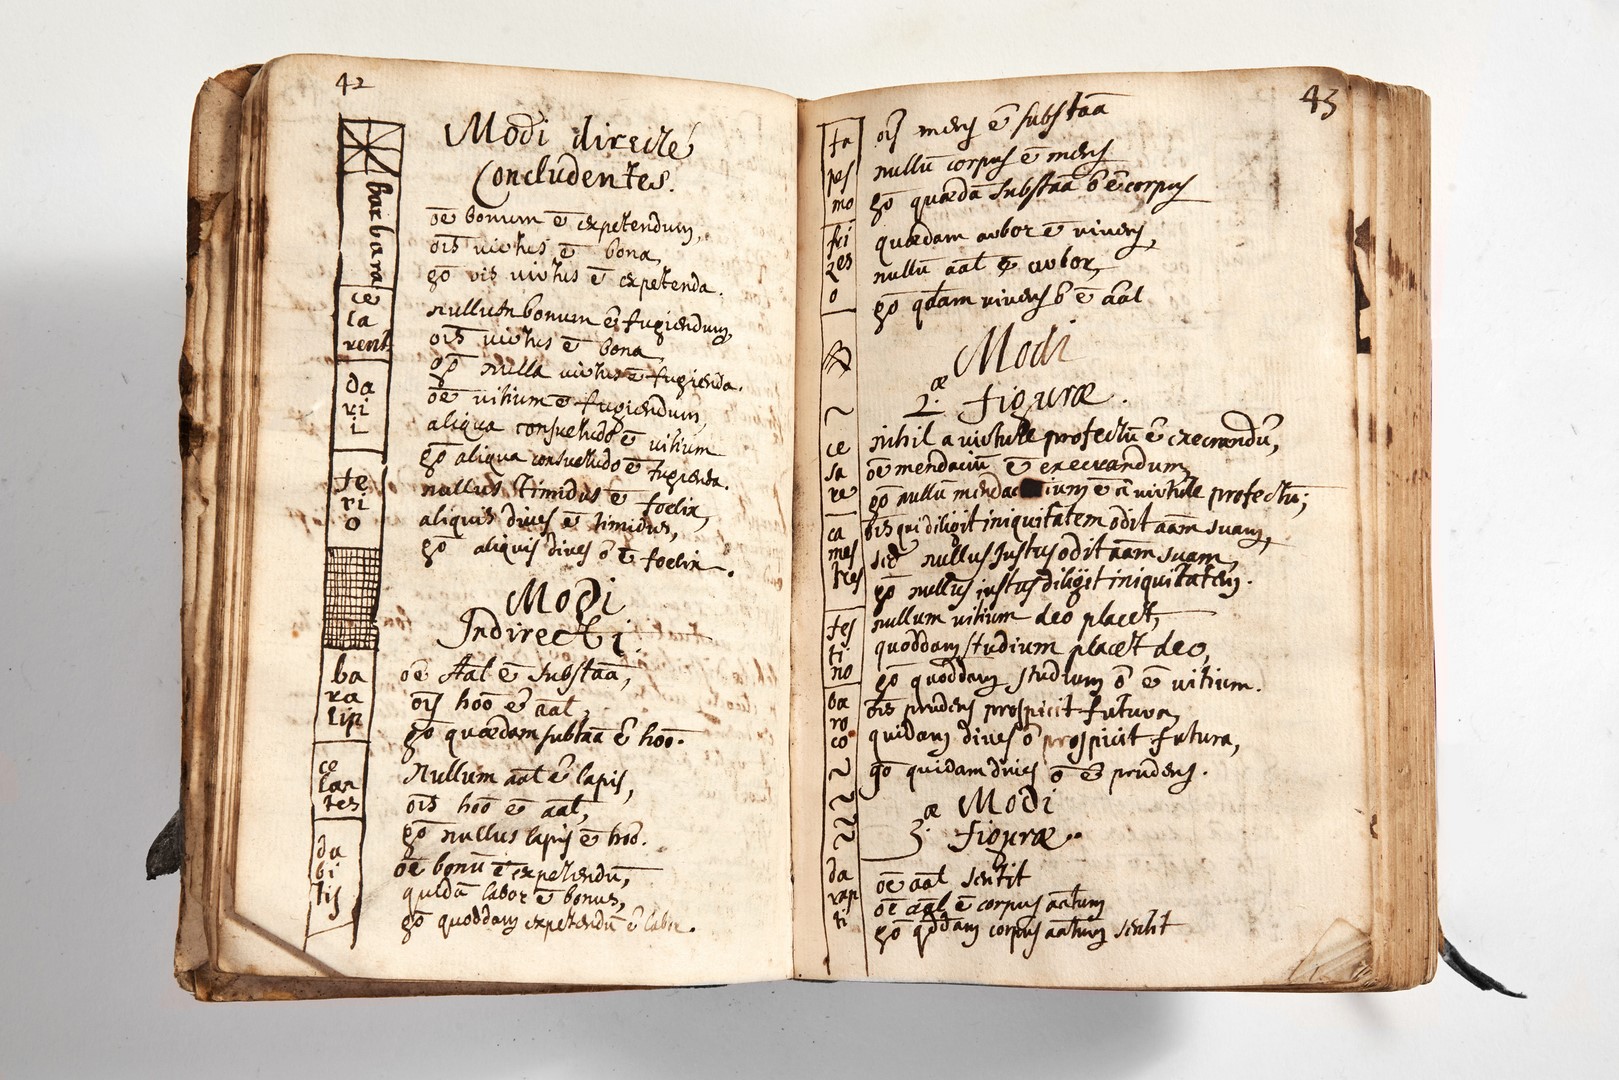 42
Modi directé
Concludentes.
barbara
oē bonum ē expetendum,
oīs virtus ē bona,
gō oīs virtus ē expetenda.
ce
la
rent
nullum bonum ē fugiendum,
oīs virtus ē bona,
gō nulla virtus ē fugienda.
da
ri
i
oē vitium ē fugiendum,
aliqua consuetudo ē vitium
gō aliqua consuetudo ē fugienda.
fe
ri
o
nullus timidus ē foelix,
aliquis dives ē timidus,
gō aliquis dives ō ē foelix.
Modi
Indirecti
ba
ra
lip
oē Aāl ē substāā,
oīs hōō ē aāl,
gō quædam subtāā ē hōō.
ce
lan
tes
Nullum aāl ē lapis,
oīs hōō ē aāl,
gō nullus lapis ē hōō.
da
bi
tis
oē bonū ē expetendū,
quidā labor ē bonus,
gō quoddam expetendū ē labor.
43
fa
pes
mo
oīs mens ē substāā
nullū corpus ē mens
gō quædā substāā ō ē corpus
fri
zes
o
quædam arbor ē vivens,
nullū aāl ē arbor,
gō qdam vivens ō ē aāl
Modi
2.æ figuræ.
ce
sa
re
nihil a virtute profectū ē execrandū,
oē mendaciū ē execrandum,
gō nullū mendacium ē a virtute profectū;
ca
mes
tres
oīs qui diligit iniquitatem odit aām suam,
sed nullus justus odit aām suam,
gō nullus justus diligit iniquitatem.
fes
ti
no
nullum vitium deo placet,
quoddam studium placet deo,
gō quoddam studium ō ē vitium.
ba
ro
co
oīs prudens prospicit futura,
quidam dives ō prospicit futura,
gō quidam dives ō ē prudens.
Modi
3.æ figuræ.
da
rap
ti
oē aāl sentit
oē aāl ē corpus aātum
gō qddam corpus aātum sentit